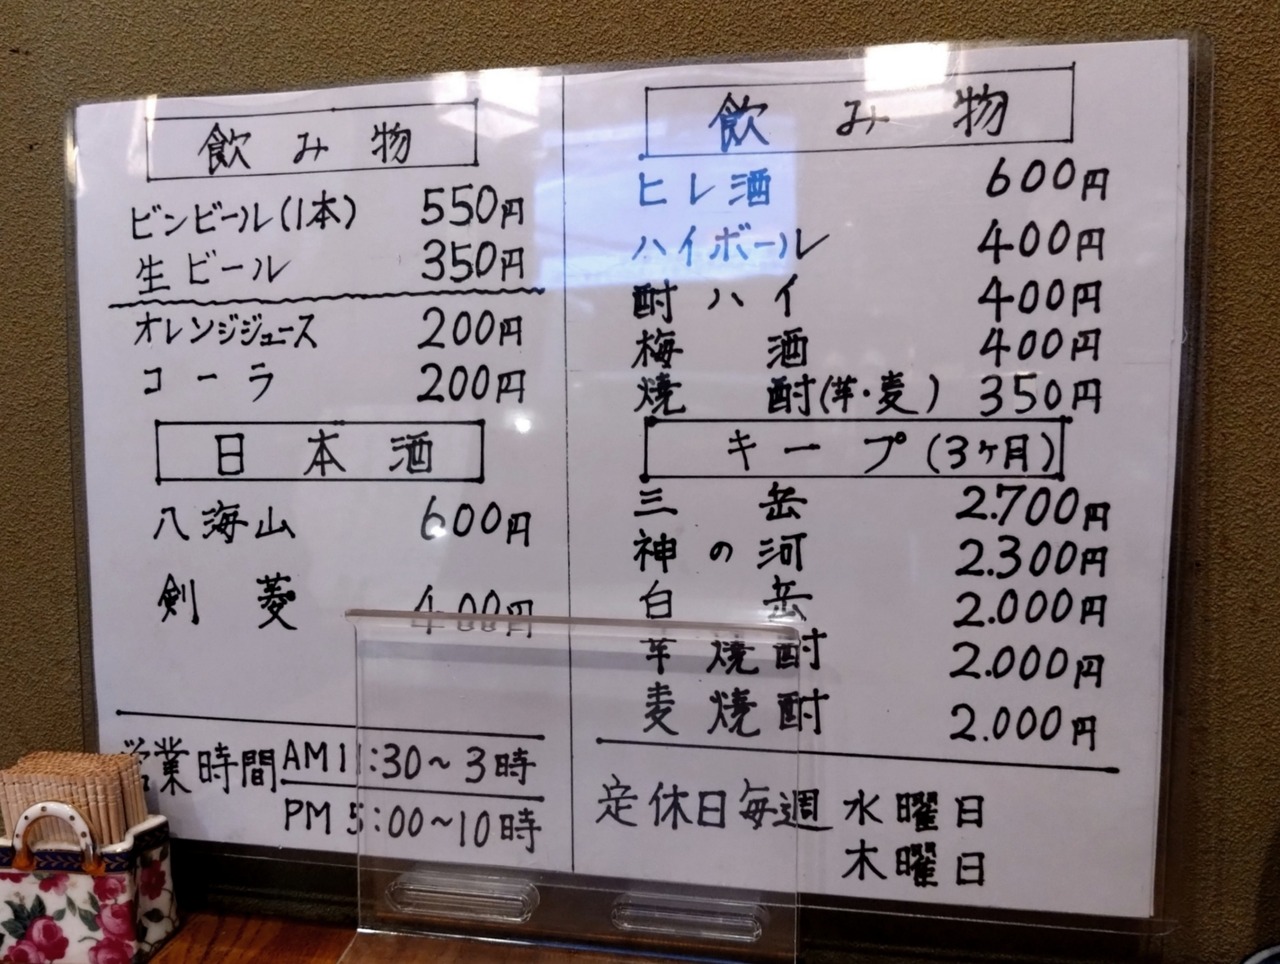 飲み物
ビンビール(1本) 550円
生ビール 350円
オレンジジュース 200円
コーラ 200円
日本酒
八海山 600円
剣菱 400円
営業時間 AM11:30~3時
PM5:00~10時
飲み物
ヒレ酒 600円
ハイボール 400円
酎ハイ 400円
梅酒 400円
焼酎(芋・麦) 350円
キープ(3ヶ月)
三岳 2.700円
神の河 2.300円
白岳 2.000円
芋焼酎 2.000円
麦焼酎 2.000円
定休日毎週 水曜日
木曜日